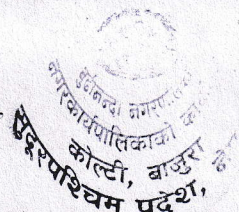 बुढीनन्दा नगरपालिका
नगरकार्यपालिकाको
कोल्टी, बाजुरा
सुदूरपश्चिम प्रदेश,